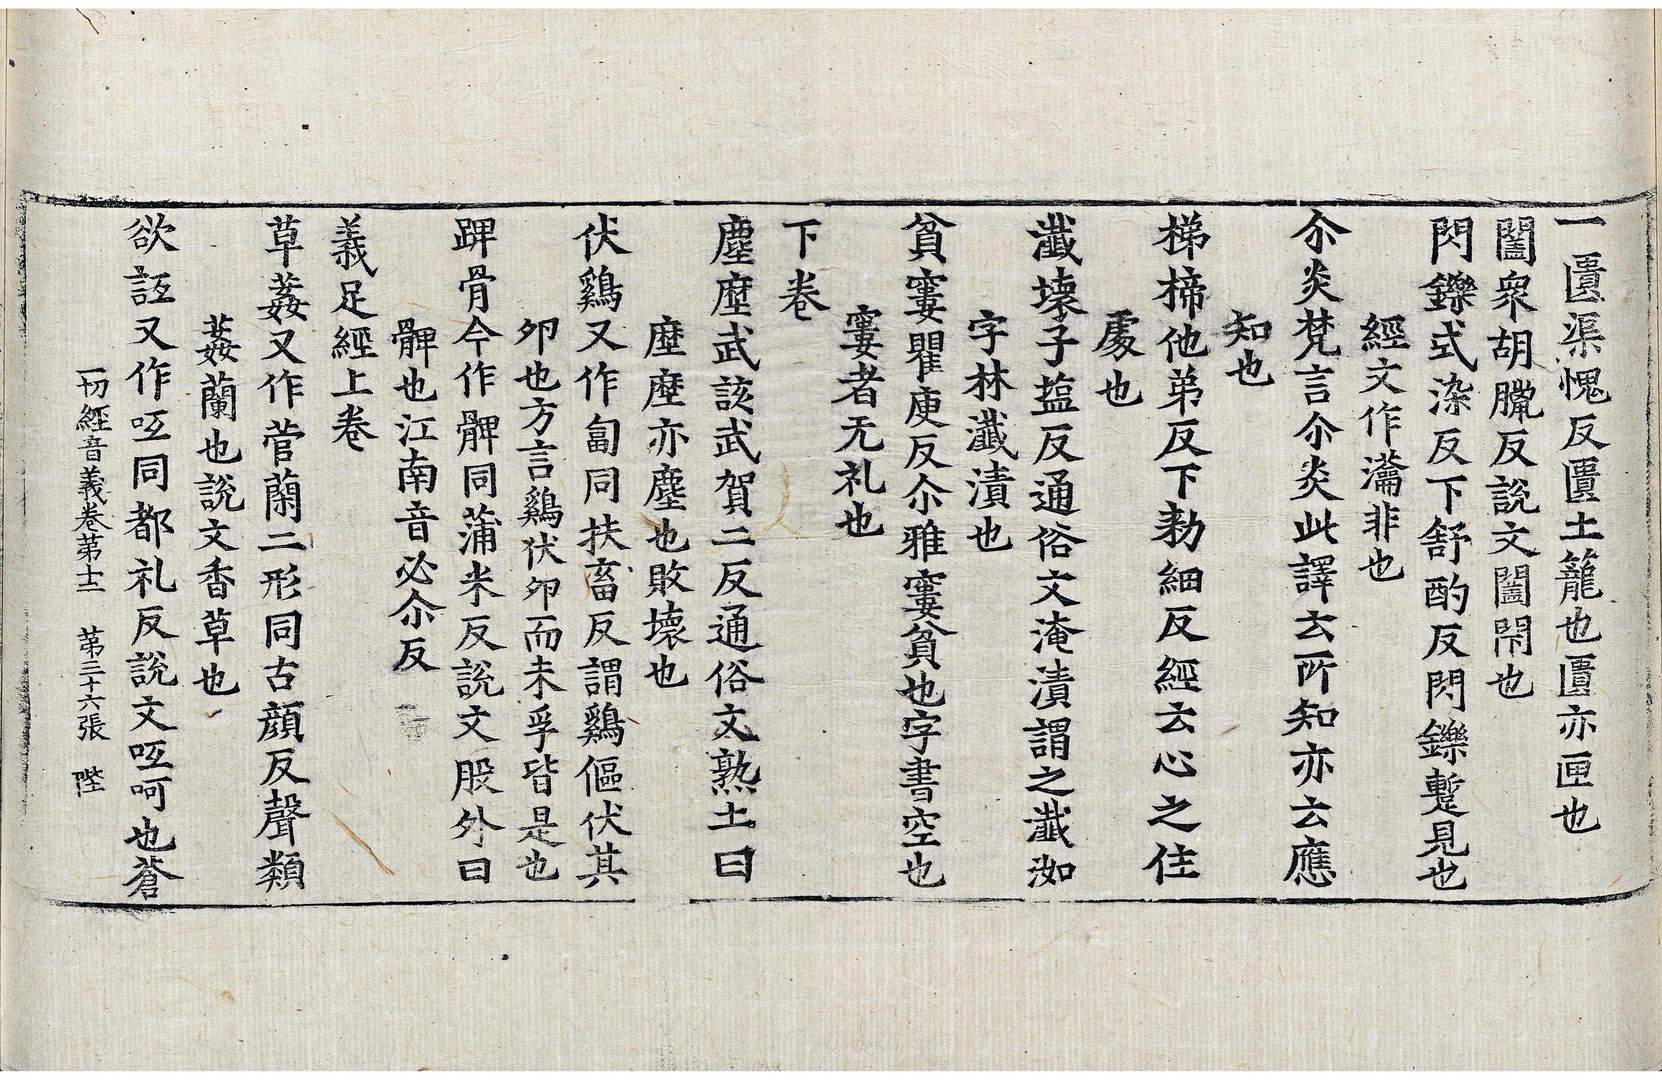 一匱渠愧反匱土籠也匱亦匣也
闔衆胡臘反說文闔閇也
閃鑠式染反下舒酌反閃鑠蹔見也
經文作㶕非也
尒炎梵言尒炎此譯云所知亦云應
知也
梯楴他弟反下勑細反經云心之住
處也
瀸壞子㿼反通俗文淹漬謂之瀸洳
字林瀸漬也
貧窶瞿庾反尒雅窶貧也字書空也
窶者无礼也
下卷
塵㙞武該武賀二反通俗文熟土曰
㙞㙞亦塵也敗壞也
伏鷄又作㔗同扶畜反謂鷄傴伏其
夘也方言鷄伏夘而未孚皆是也
踝骨今作髀同蒲米反說文股外曰
髀也江南音必尒反
義足經上卷
草葌又作菅蕑二形同古顏反聲類
葌蘭也說文香草也
欲詆又作呧同都礼反說文呧呵也蒼
一切經音義卷第十二 第三十六張 陛